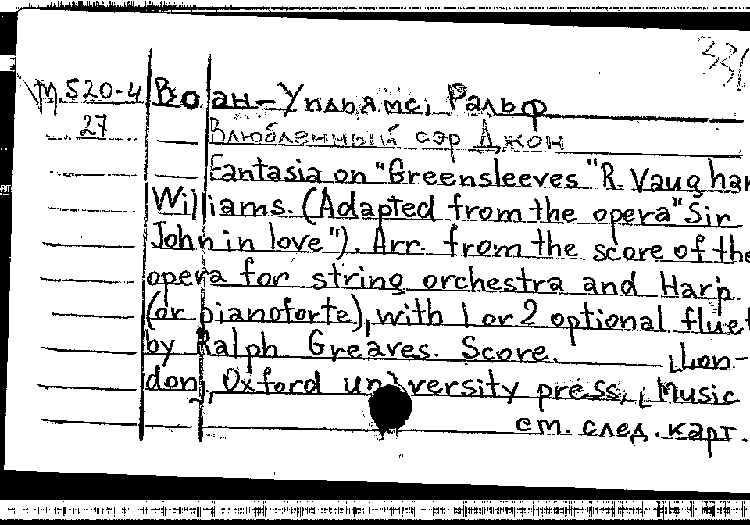 336
М.520-4 Воан-Уильямс, Ральф
27 Влюбленный сэр Джон
Fantasia on "Greensleeves" R. Vaughan
Williams. (Adapted from the opera "Sir
John in love"). Arr. from the score of the
opera for string orchestra and Harp
(or pianoforte), with 1 or 2 optional fluet
by Ralph Greaves. Score. [Lon-
don], Oxford university press, [Music
см. след. карт.